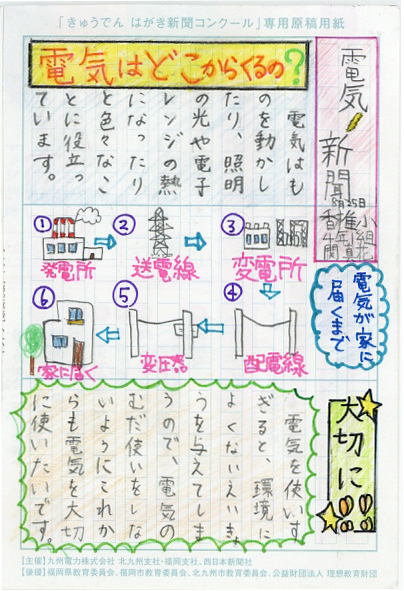 「きゅうでん はがき新聞コンクール」専用原稿用紙
電気新聞
8月25日
香椎小
4年1組
電気はどこからくるの?
電気はも
のを動かし
たり、照明
の光や電子
レンジの熱
になったり
と色々なこ
とに役立っ
ています。
電気が家に
届くまで
① 発電所
② 送電線
③ 変電所
④ 配電線
⑤ 変圧器
⑥ 家に届く
大切に!!
電気を使いす
ぎると、環境に
よくないえいきょ
うを与えてしま
うので、電気の
むだ使いをしな
いようにこれか
らも電気を大切
に使いたいです。
【主催】九州電力株式会社 北九州支社・福岡支社、西日本新聞社
【後援】福岡県教育委員会、福岡市教育委員会、北九州市教育委員会、公益財団法人 理想教育財団